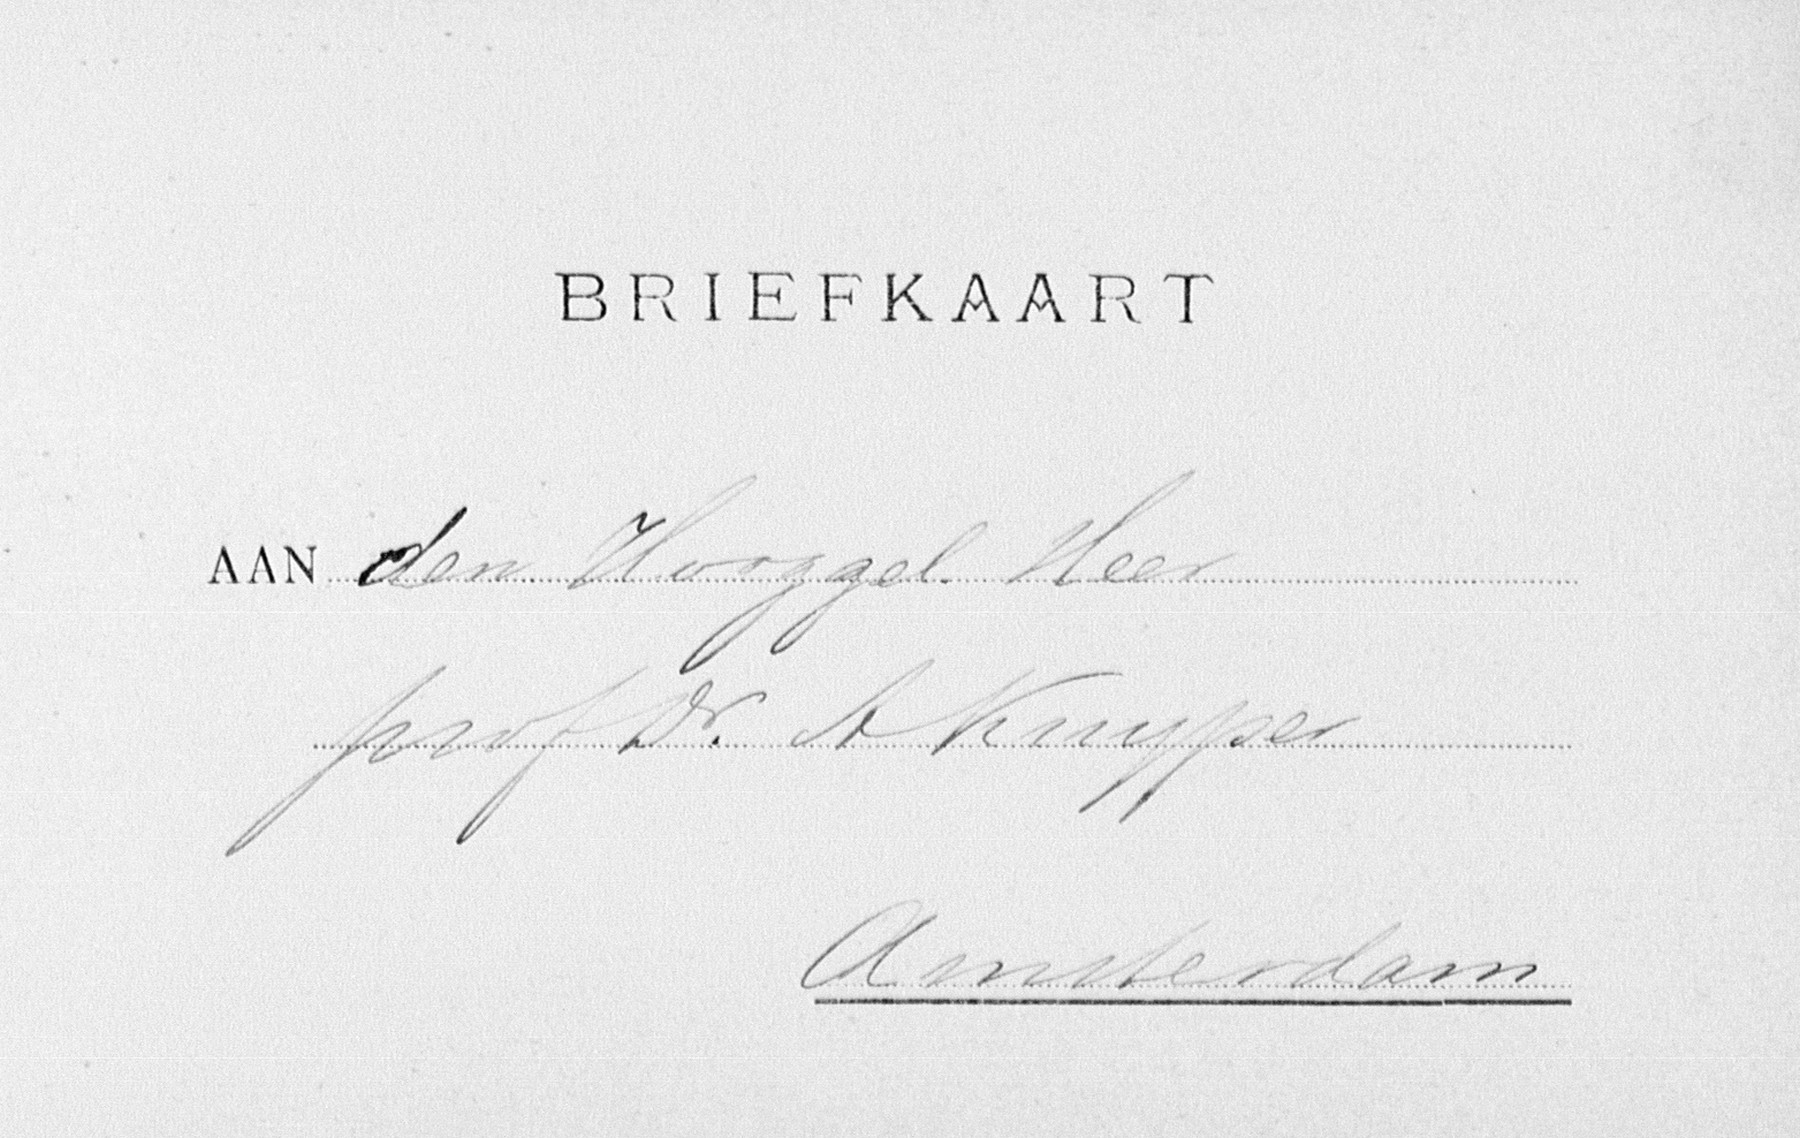 BRIEFKAART
AAN den Hooggel. Heer
prof Dr. A Kuyper
Amsterdam